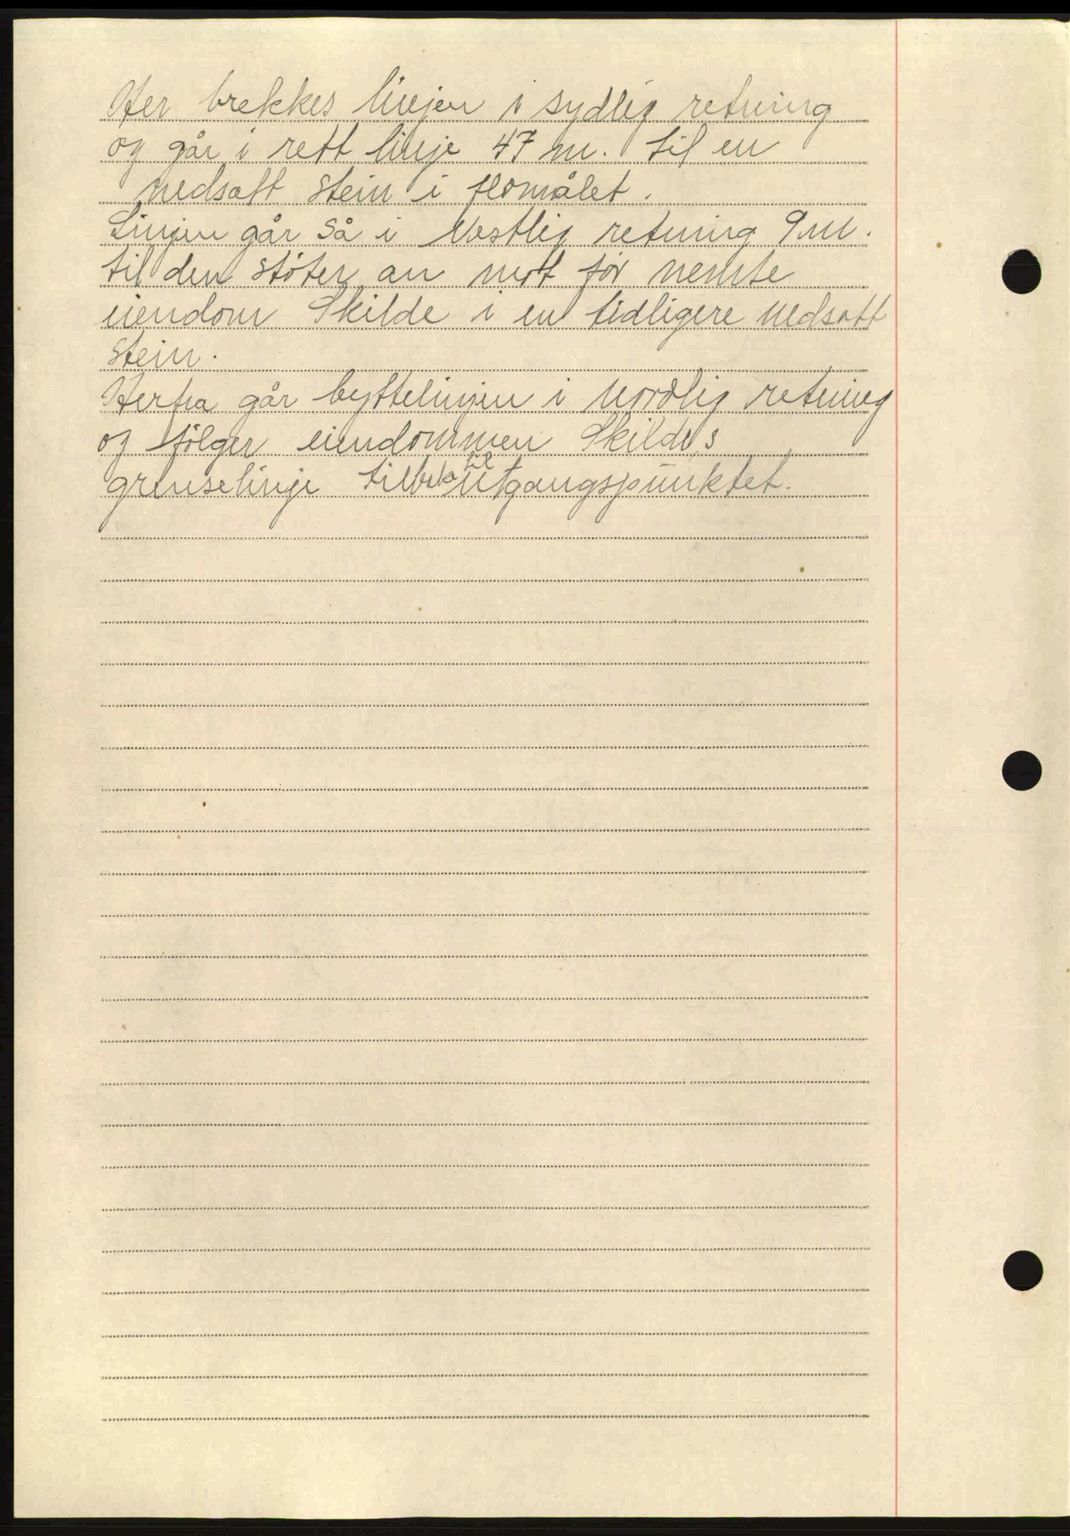 Her brekkes linjen i sydlig retning
og går i rett linje 47 m. til en
nedsatt stein i flomålet.
Linjen går så i vestlig retning 9 m.
til den støter an mot før nemte
eiendom Skilde i en tidligere nedsatt
stein.
Herfra går byttelinjen i nordlig retning
og følger eiendommen Skilde's
grenselinje tilbake til utgangspunktet.